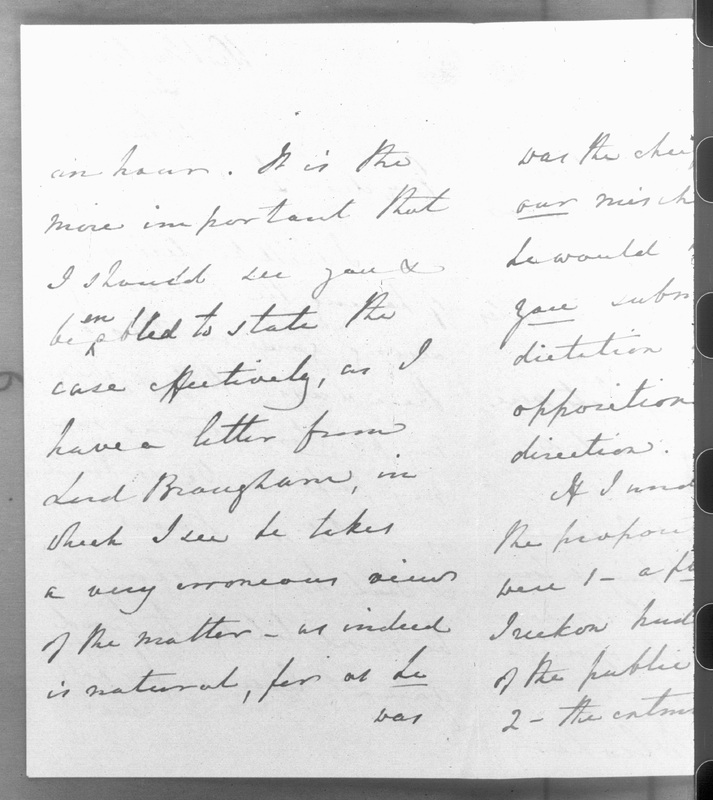 an hour. It is the
more important that
I should see you &
be enabled to state the
case effectively, as I
have a letter from
Lord Brougham, in
which I see he takes
a very erroneous view
of the matter - as indeed
is natural, for as he
was
was the chei
our misch
he would
you subm
dictation
opposition
direction.
If I und
the propou
were 1 - a
I reckon
of the public
2 - the